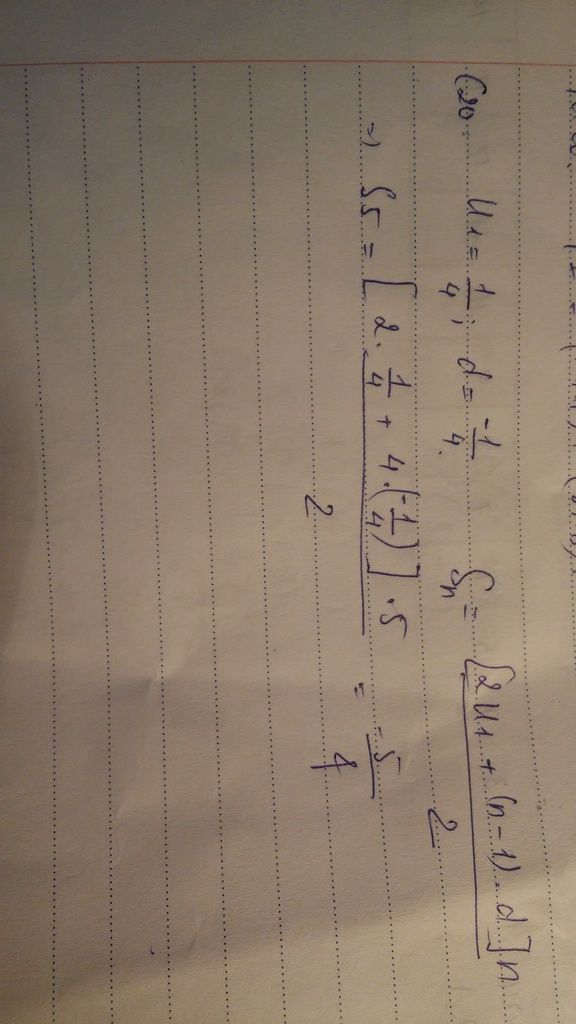 C20. U1 = 1/4 ; d = -1/4. Sn = [2U1 + (n-1).d]n / 2
=> S5 = [2.1/4 + 4.(-1/4)].5 / 2 = -5/4